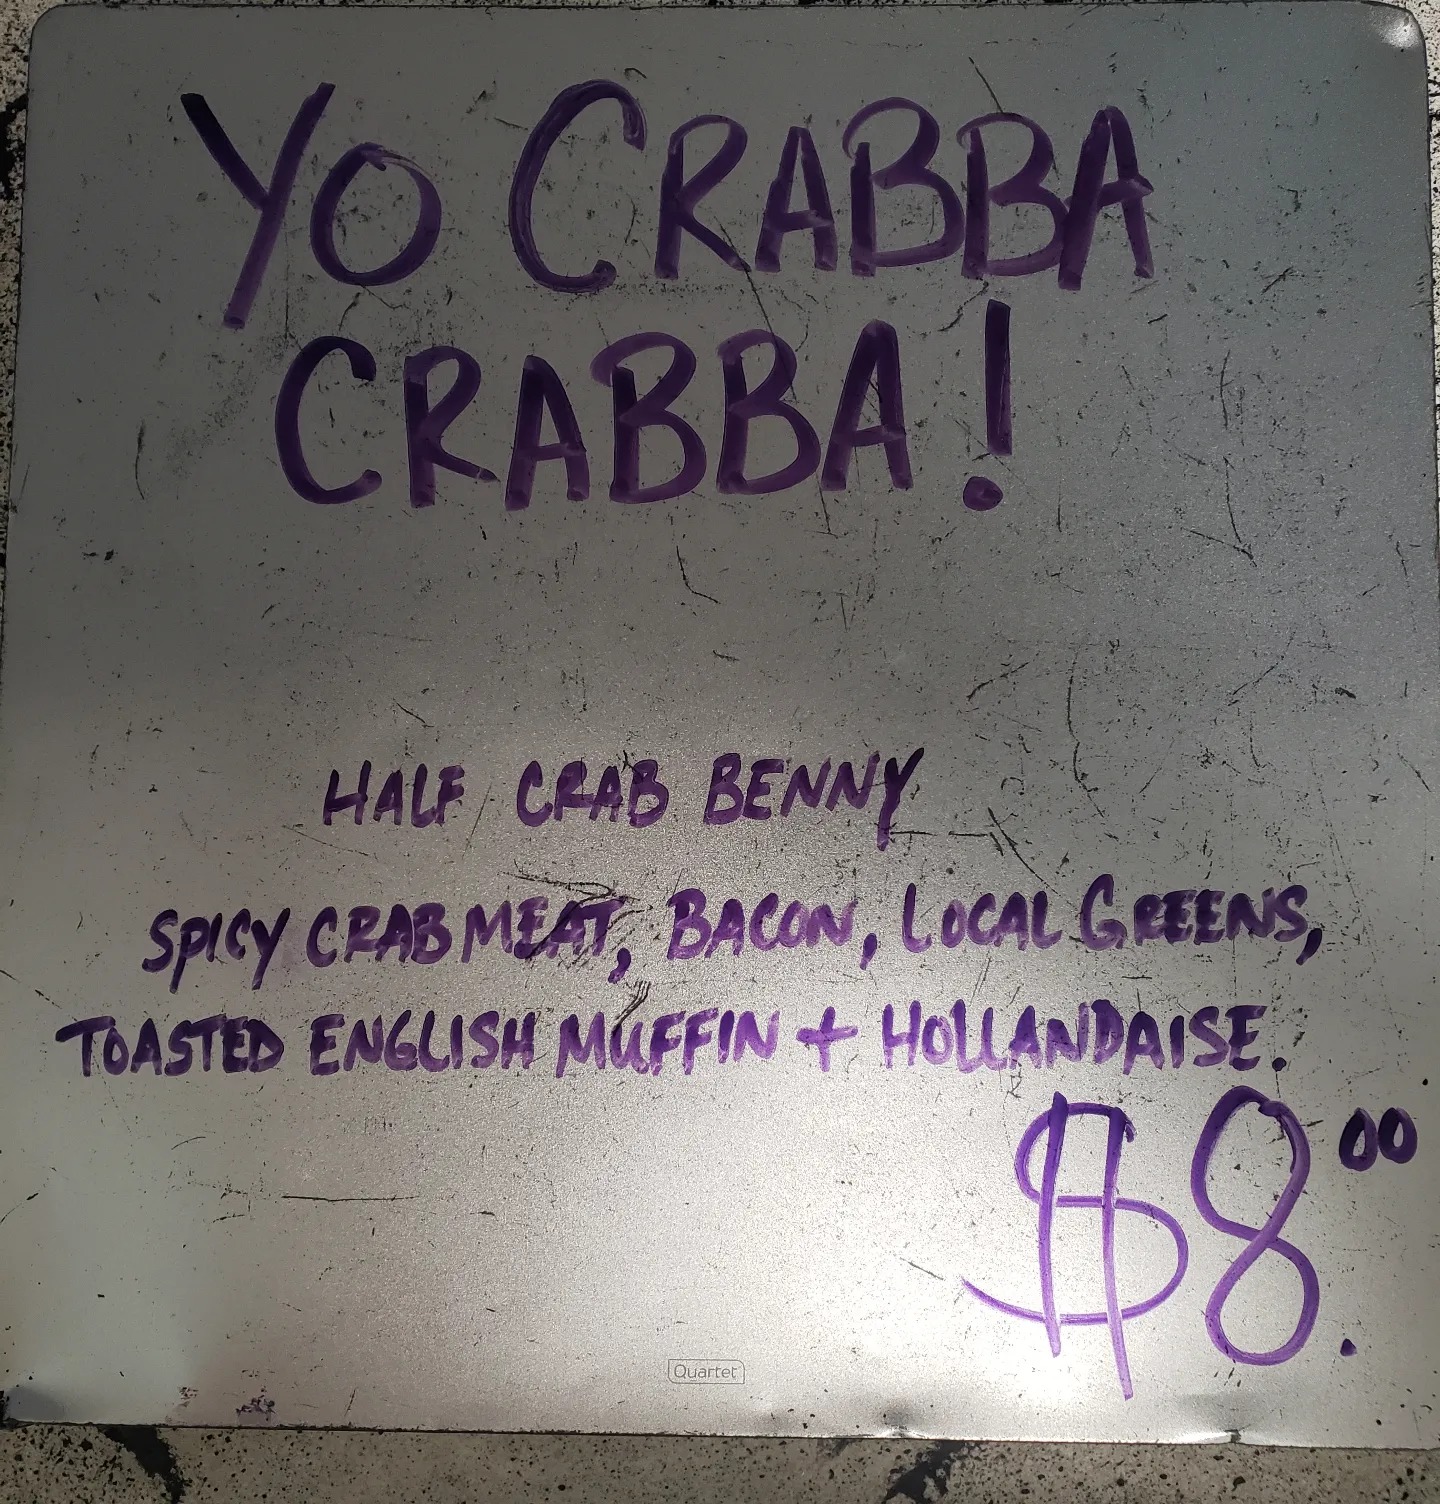 YO CRABBA
CRABBA!
HALF CRAB BENNY
SPICY CRABMEAT, BACON, LOCAL GREENS,
TOASTED ENGLISH MUFFIN + HOLLANDAISE.
$8.00
Quartet